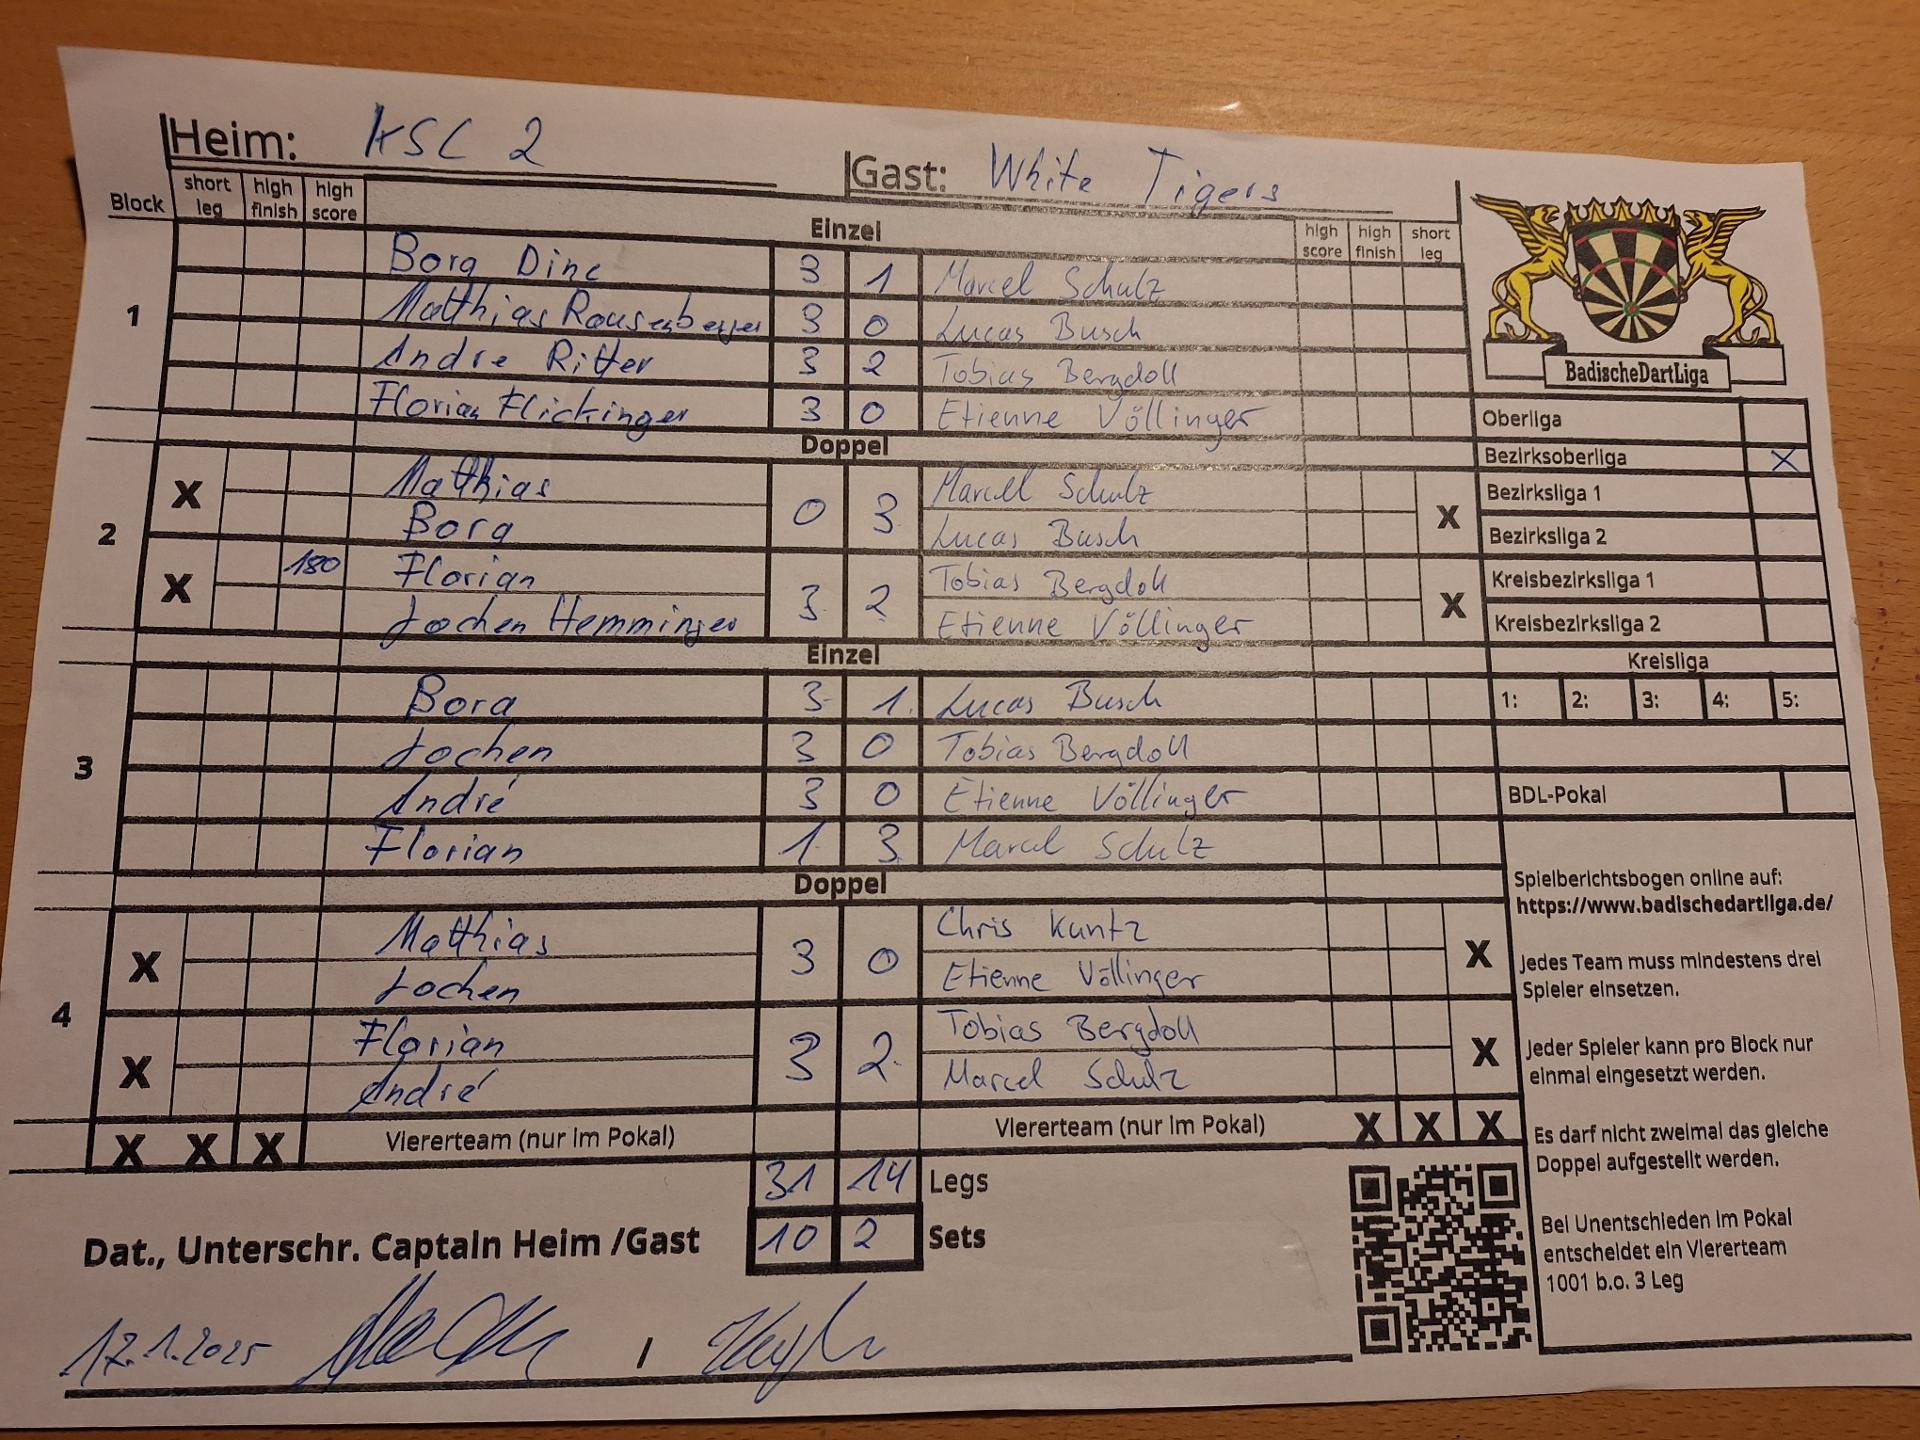 Heim: KSC 2 Gast: White Tigers
Block short leg high finish high score Einzel high score high finish short leg
1
Bora Dinc 3 1 Marcel Schulz
Matthias Rausenberger 3 0 Lucas Busch
Andre Ritter 3 2 Tobias Bergdoll
Florian Flickinger 3 0 Etienne Völlinger
Doppel
2
X Matthias 0 3 Marcel Schulz X
Bora Lucas Busch
X 180 Florian 3 2 Tobias Bergdoll X
Jochen Hemminger Etienne Völlinger
Einzel
3
Bora 3 1 Lucas Busch
Jochen 3 0 Tobias Bergdoll
André 3 0 Etienne Völlinger
Florian 1 3 Marcel Schulz
Doppel
4
X Matthias 3 0 Chris Kuntz X
Jochen Etienne Völlinger
X Florian 3 2 Tobias Bergdoll X
André Marcel Schulz
X X X Viererteam (nur im Pokal) Viererteam (nur im Pokal) X X X
31 14 Legs
10 2 Sets
Dat., Unterschr. Captain Heim /Gast
17.1.2025 /
BadischeDartLiga
Oberliga
Bezirksoberliga X
Bezirksliga 1
Bezirksliga 2
Kreisbezirksliga 1
Kreisbezirksliga 2
Kreisliga
1: 2: 3: 4: 5:
BDL-Pokal
Spielberichtsbogen online auf:
https://www.badischedartliga.de/
Jedes Team muss mindestens drei
Spieler einsetzen.
Jeder Spieler kann pro Block nur
einmal eingesetzt werden.
Es darf nicht zweimal das gleiche
Doppel aufgestellt werden.
Bei Unentschieden im Pokal
entscheidet ein Viererteam
1001 b.o. 3 Leg